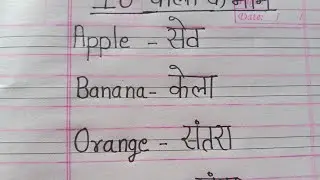 10 फलों के नाम
Date: / /
Apple - सेव
Banana- केला
Orange - संतरा